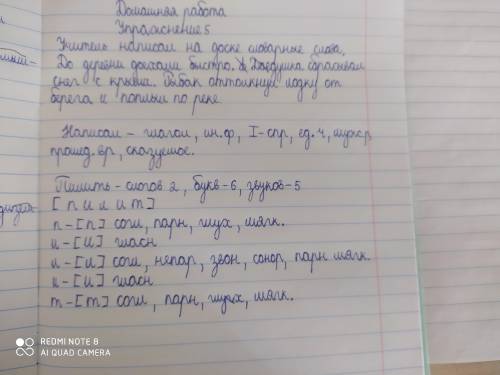 Домашняя работа
Упражнение 5
Учитель написал на доске словарные слова.
До деревни доехали быстро. Дедушка сбрасывал
снег с крыши. Рыбак оттолкнул лодку от
берега и поплыл по реке.
Написал - глагол, ин.ф, I-спр, ед.ч, муж.р
прошед. вр, сказуемое.
Пилить - слогов 2, букв-6, звуков-5
[пилит]
п-[п] согл, парн, глух, мягк.
и-[и] гласн
л-[л] согл, непар, звон, сонор, парн мягк.
и-[и] гласн
т-[т] согл, парн, глух, мягк.
REDMI NOTE 8
AI QUAD CAMERA